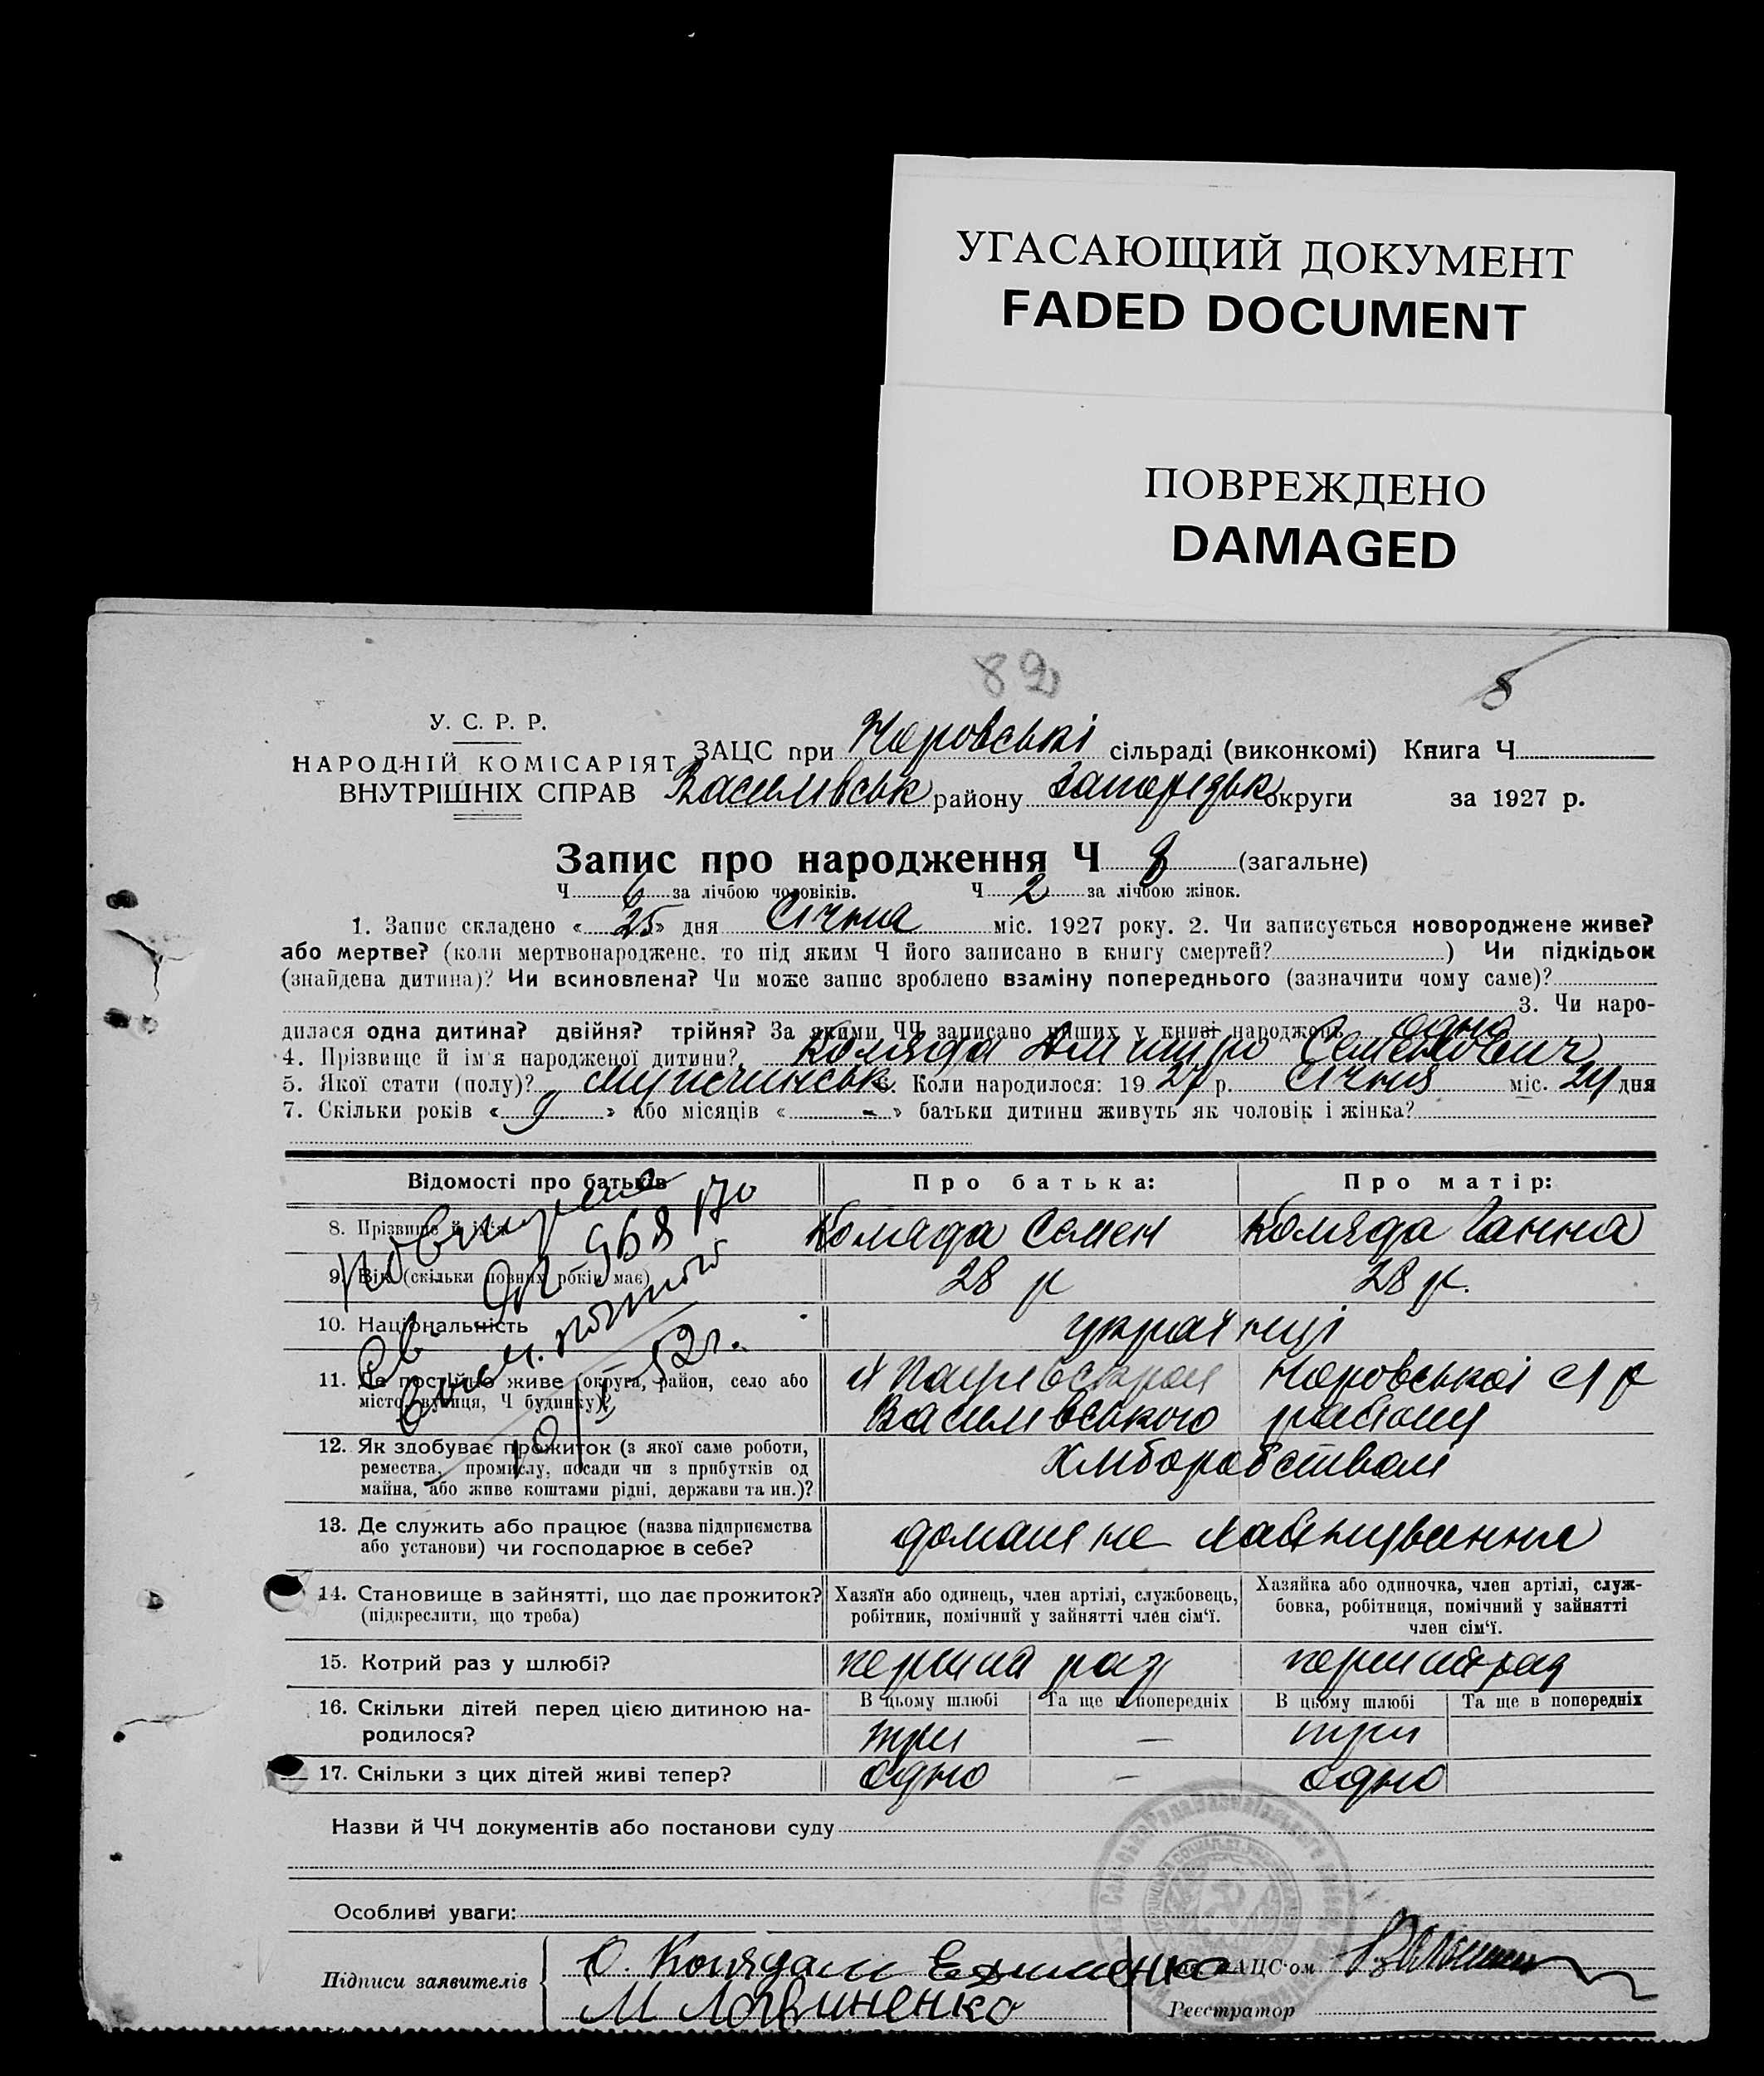 УГАСАЮЩИЙ ДОКУМЕНТ
FADED DOCUMENT
ПОВРЕЖДЕНО
DAMAGED
82
8
У. С. Р. Р.
НАРОДНІЙ КОМІСАРІЯТ
ВНУТРІШНІХ СПРАВ
ЗАЦС при сільраді (виконкомі) Книга Ч
Василівськ району Запорізьк округи за 1927 р.
Запис про народження Ч 8 (загальне)
Ч 6 за лічбою чоловіків. Ч 2 за лічбою жінок.
1. Запис складено « 25 » дня Січня міс. 1927 року. 2. Чи записується новороджене живе?
або мертве? (коли мертвонароджене, то під яким Ч його записано в книгу смертей? ) Чи підкідьок
(знайдена дитина)? Чи всиновлена? Чи може запис зроблено взаміну попереднього (зазначити чому саме)?
3. Чи наро-
дилася одна дитина? двійня? трійня? За якими ЧЧ записано инших у книзі народжень одно
4. Прізвище й ім'я народженої дитини? Коляда Дмитро Семенович
5. Якої стати (полу)? мужчинськ. Коли народилося: 19 27 р. Січня міс. 24 дня
7. Скільки років « 9 » або місяців « - » батьки дитини живуть як чоловік і жінка?
Відомості про батьків Про батька: Про матір:
8. Прізвище й ім'я Коляда Семен Коляда Ганна
9. Вік (скільки повних років має) 28 р 28 р.
10. Національність українці
11. Де постійно живе (округа, район, село або
місто, вулиця, Ч будинку)?
Василівського району
12. Як здобуває прожиток (з якої саме роботи,
ремества, промислу, посади чи з прибутків од
майна, або живе коштами рідні, держави та ин.)?
хліборобством
13. Де служить або працює (назва підприємства
або установи) чи господарює в себе?
14. Становище в зайнятті, що дає прожиток?
(підкреслити, що треба)
Хазяїн або одинець, член артілі, службовець,
робітник, помічний у зайнятті член сім'ї.
Хазяйка або одиночка, член артілі, служ-
бовка, робітниця, помічний у зайнятті
член сім'ї.
15. Котрий раз у шлюбі? перший раз перший раз
16. Скільки дітей перед цією дитиною на-
родилося?
В цьому шлюбі Та ще в попередніх В цьому шлюбі Та ще в попередніх
три — три
17. Скільки з цих дітей живі тепер? одно — одно
Назви й ЧЧ документів або постанови суду
Особливі уваги:
Підписи заявителів
О. Коляда
М Логвиненко
ЗАЦС'ом
Реєстратор